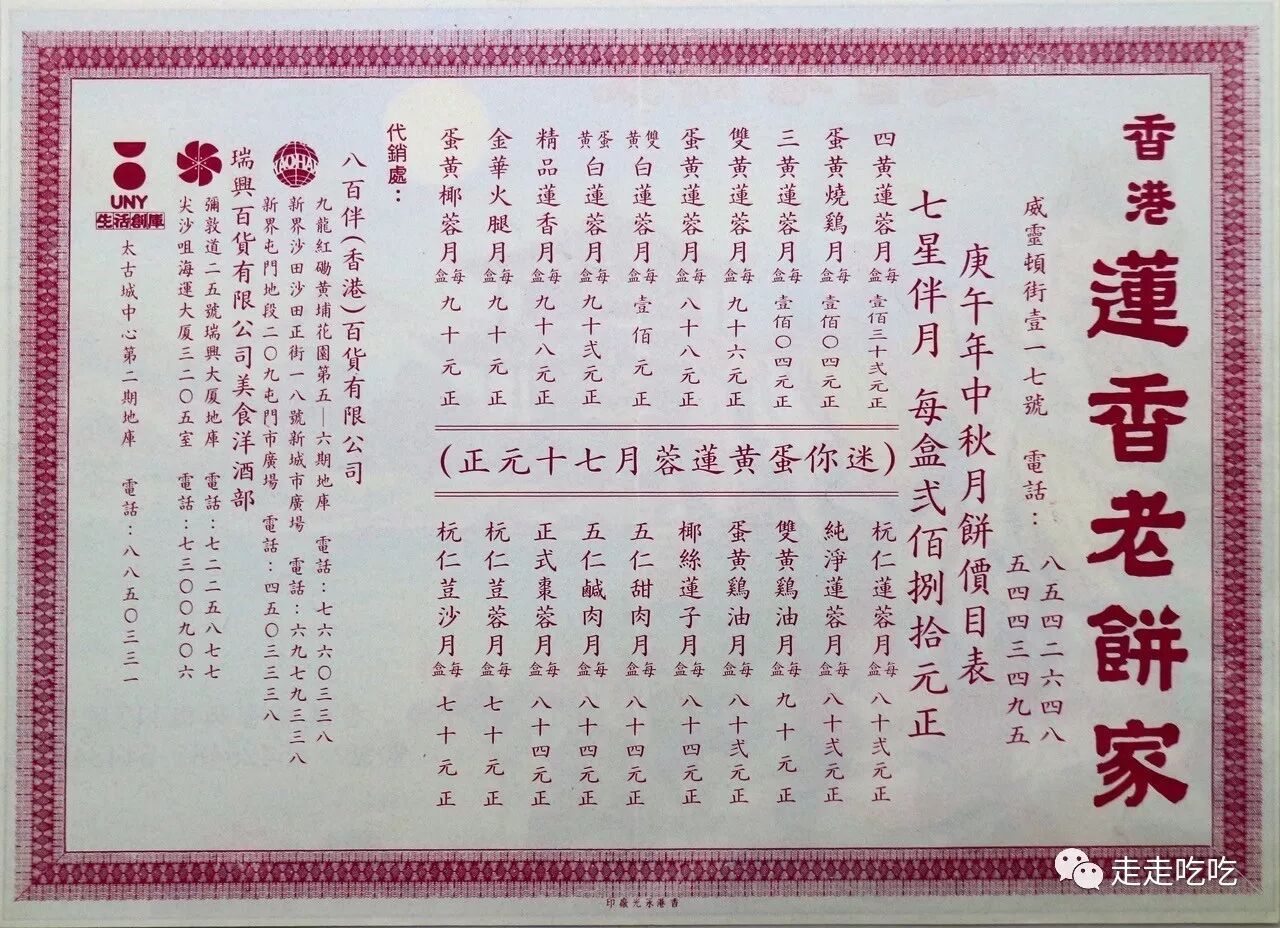 香港蓮香老餅家
威靈頓街壹一七號 電話：
八五四二六四八
五四四三四九五
庚午年中秋月餅價目表
七星伴月 每盒弍佰捌拾元正
四黃蓮蓉月每盒壹佰三十弍元正
蛋黃燒鷄月每盒壹佰〇四元正
三黃蓮蓉月每盒壹佰〇四元正
雙黃蓮蓉月每盒九十六元正
蛋黃蓮蓉月每盒八十八元正
雙黃白蓮蓉月每盒壹佰元正
蛋黃白蓮蓉月每盒九十弍元正
精品蓮香月每盒九十八元正
金華火腿月每盒九十元正
蛋黃椰蓉月每盒九十元正
(迷你蛋黃蓮蓉月七十元正)
杬仁蓮蓉月每盒八十弍元正
純淨蓮蓉月每盒八十弍元正
雙黃鷄油月每盒九十元正
蛋黃鷄油月每盒八十弍元正
椰絲蓮子月每盒八十四元正
五仁甜肉月每盒八十四元正
五仁鹹肉月每盒八十四元正
正式棗蓉月每盒八十四元正
杬仁荳蓉月每盒七十元正
杬仁荳沙月每盒七十元正
代銷處：
八百伴(香港)百貨有限公司
YAOHAN
九龍紅磡黃埔花園第五—六期地庫 電話：七六六〇三三八
新界沙田沙田正街一八號新城市廣場 電話：六九七九三三八
新界屯門地段二〇九屯門市廣場 電話：四五〇三三三八
瑞興百貨有限公司美食洋酒部
彌敦道二五號瑞興大厦地庫 電話：七二二五八七七
尖沙咀海運大厦三二〇五室 電話：七三〇〇九〇六
UNY
生活創庫
太古城中心第二期地庫 電話：八八五〇三三一
走走吃吃